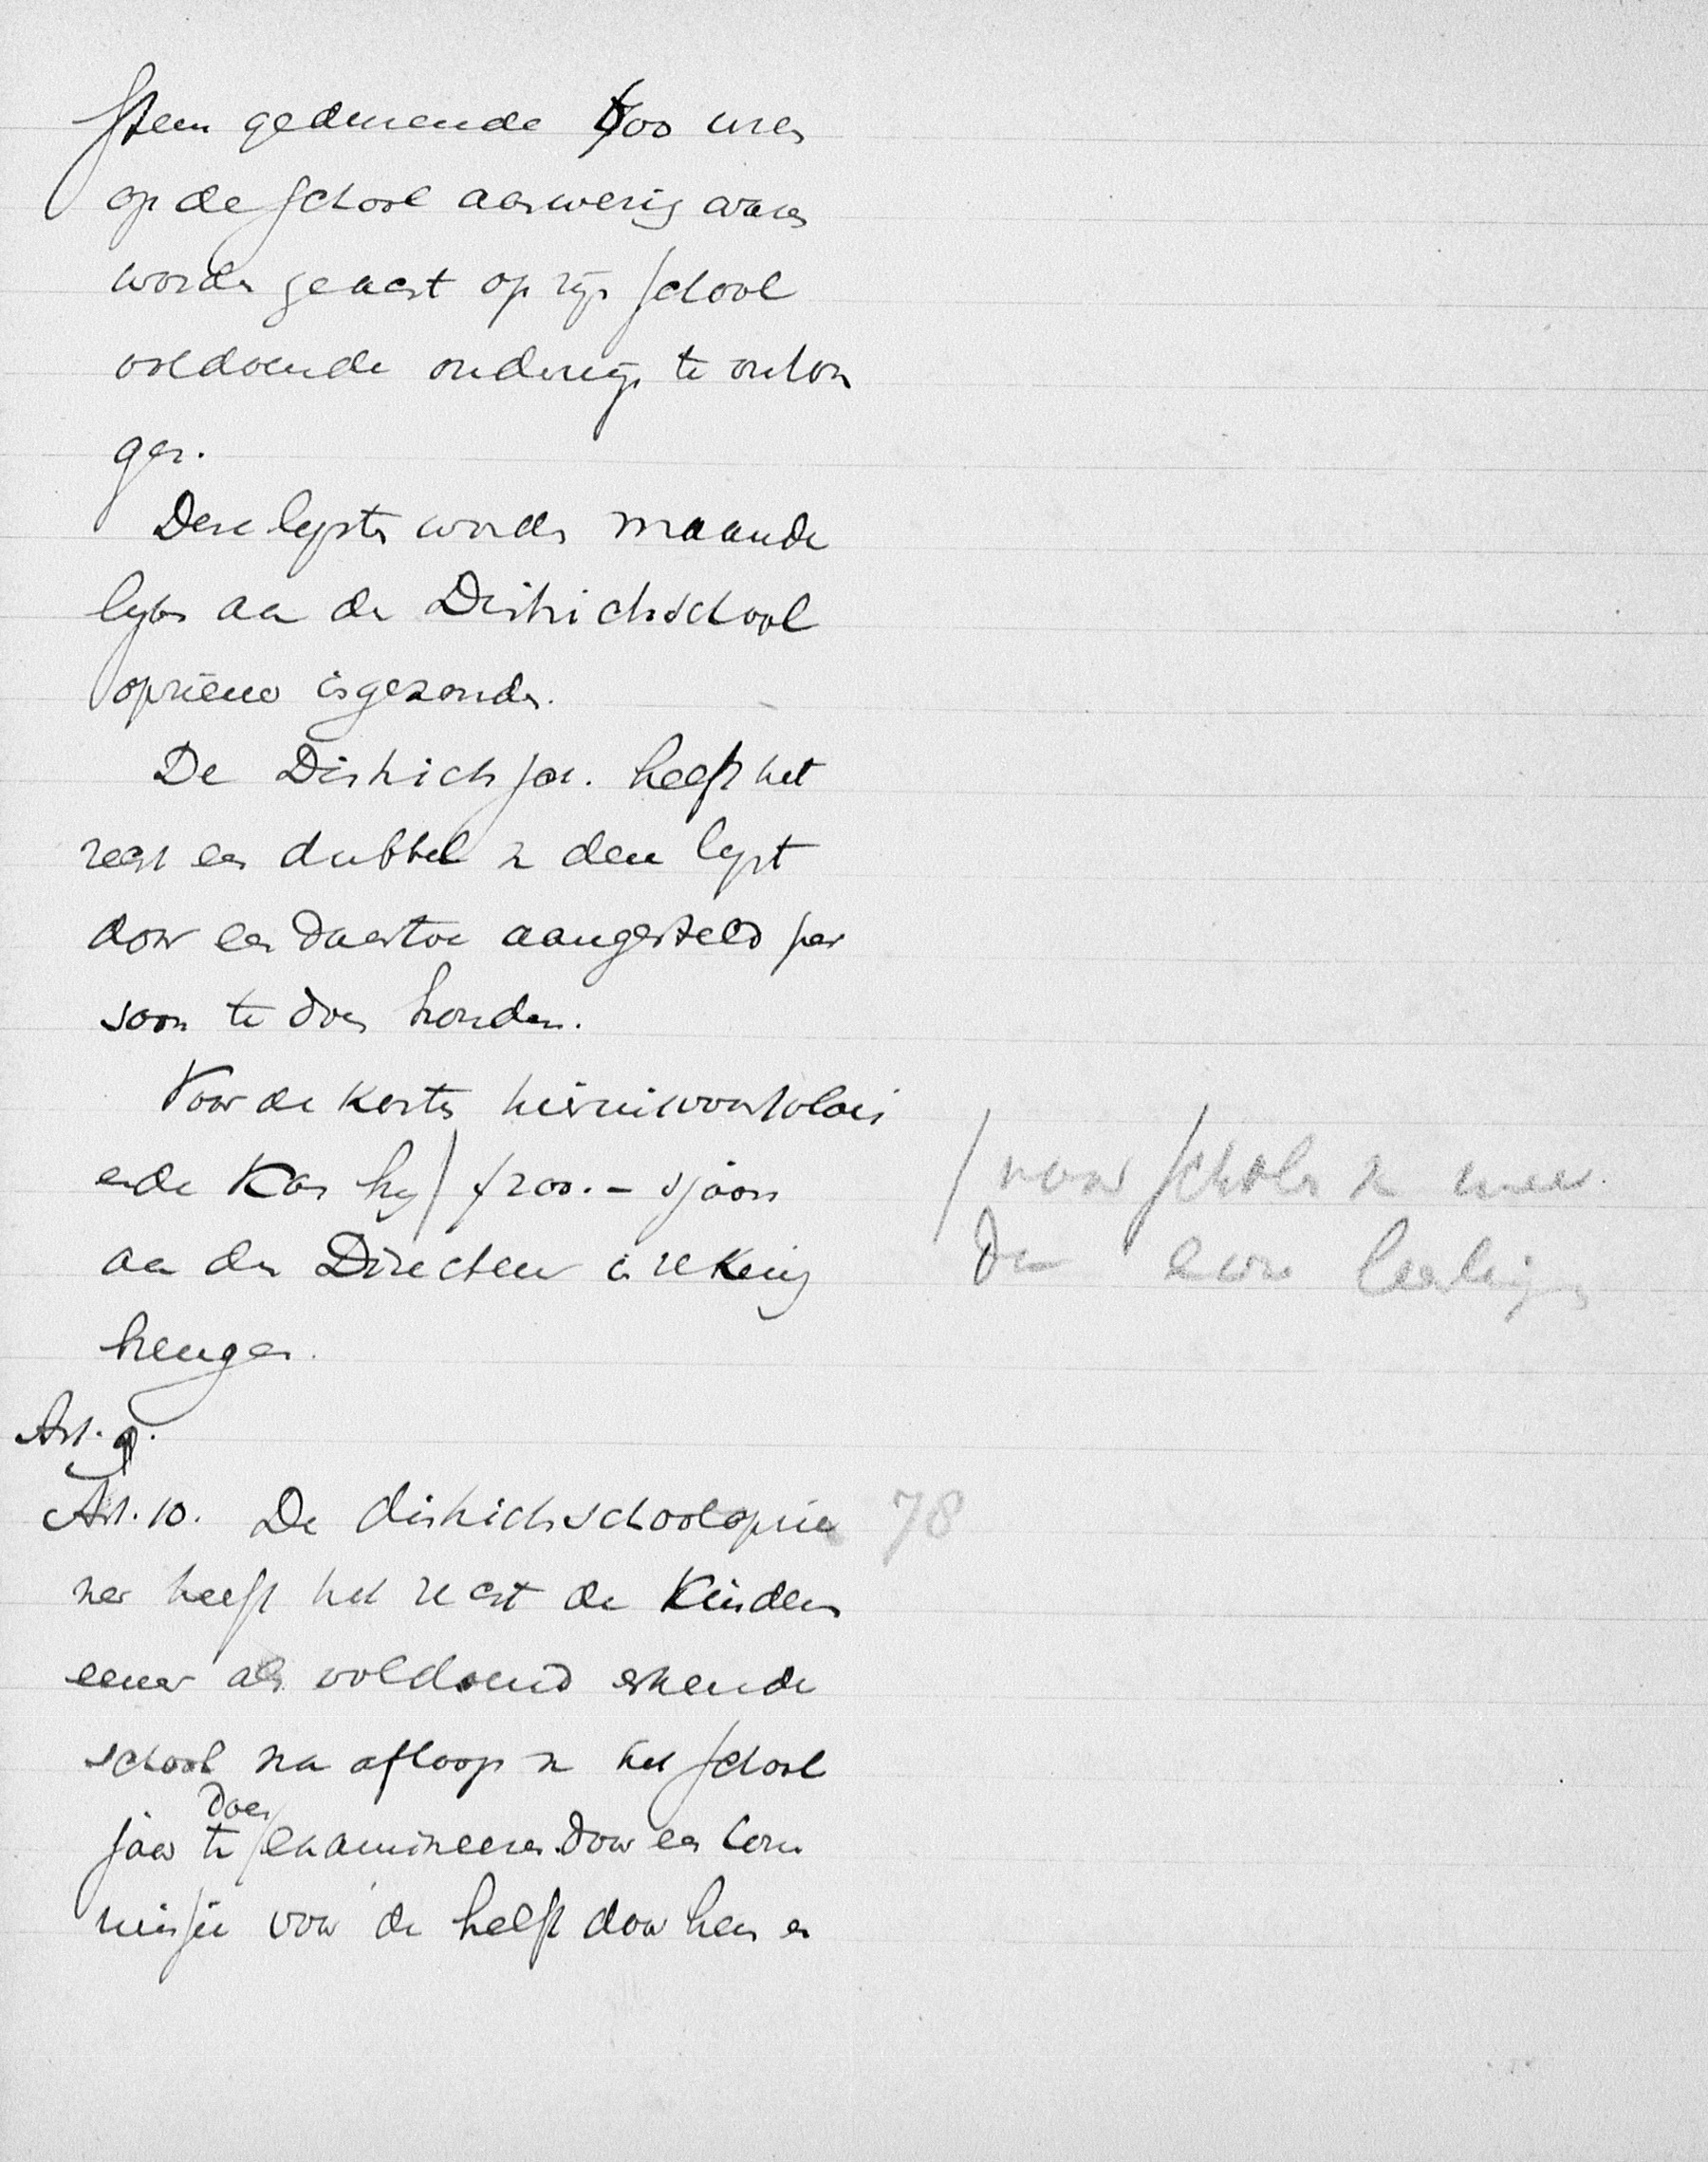 stem gedurende 600 uren
op de school aanwezig waren
worden geacht op rijs school
voldoende onderwijs te ontvan
gen.
Deze lijsten worden maande
lijks aan de Districtsschool
opziener ingezonden.
De Districtssch. heeft het
recht een dubbel v deze lijst
door een daartoe aangesteld per
soon te doen houden.
Voor de kosten hieruit voortvloei
ende kan hij / f 200.- 's jaars
aan den Directeur in rekening
brengen.
/ voor scholen v meer
dan leerlingen
Art. 9.
Art. 10. De districtsschoolopzie 78
ner heeft het recht de kinderen
eener als voldoend erkende
school na afloop v het school
doen
jaar te / examineeren door een com
missie voor de helft door hem en